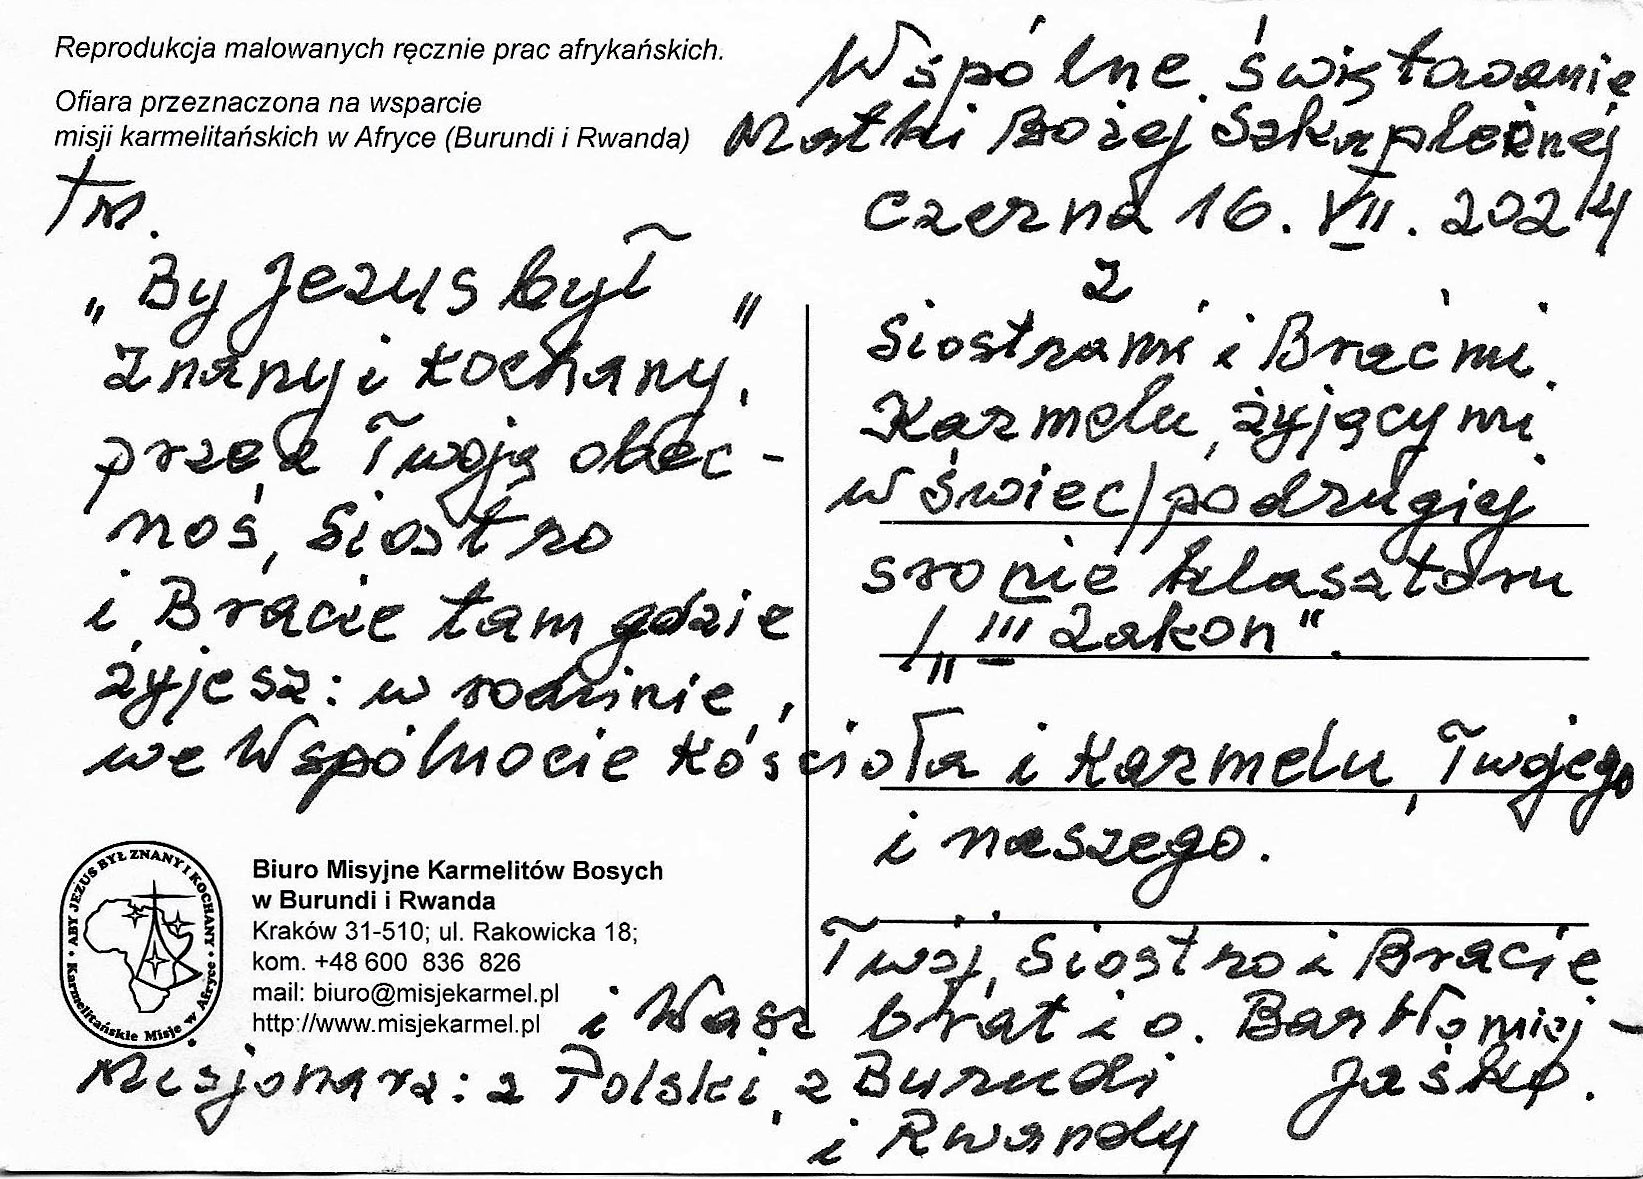 Reprodukcja malowanych ręcznie prac afrykańskich.
Ofiara przeznaczona na wsparcie
misji karmelitańskich w Afryce (Burundi i Rwanda)
Wspólne świętowanie
Matki Bożej Szkaplerznej
Czerna 16. VII. 2024
z
Siostrami i Braćmi
Karmelu, żyjącymi
w świec/po drugiej
sronie klasztoru
/„III Zakon".
"By Jezus był "
znany i kochany,
przez Twoją obec-
noś, Siostro
i Bracie tam gdzie
żyjesz: w rodzinie,
we Wspólnocie Kościoła i Karmelu, Twojego
i naszego.
Twój, Siostro i Bracie
i Wasz brat i o. Bartłomiej -
Misjonarz: z Polski, z Burudi Jaśko.
i Rwandy
ABY JEZUS BYŁ ZNANY I KOCHANY
Karmelitańskie Misje w Afryce
Biuro Misyjne Karmelitów Bosych
w Burundi i Rwanda
Kraków 31-510; ul. Rakowicka 18;
kom. +48 600 836 826
mail: biuro@misjekarmel.pl
http://www.misjekarmel.pl